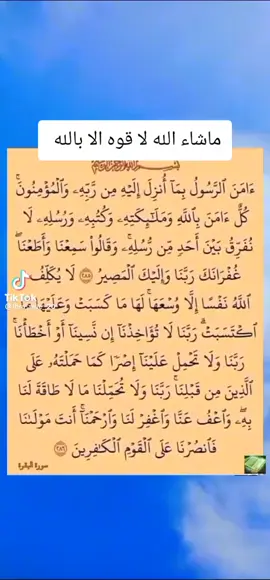 ماشاء الله لا قوه الا بالله
ءَامَنَ ٱلرَّسُولُ بِمَآ أُنزِلَ إِلَيْهِ مِن رَّبِّهِۦ وَٱلْمُؤْمِنُونَۚ
كُلٌّ ءَامَنَ بِٱللَّهِ وَمَلَٰٓئِكَتِهِۦ وَكُتُبِهِۦ وَرُسُلِهِۦ لَا
نُفَرِّقُ بَيْنَ أَحَدٍ مِّن رُّسُلِهِۦۚ وَقَالُوا۟ سَمِعْنَا وَأَطَعْنَاۖ
غُفْرَانَكَ رَبَّنَا وَإِلَيْكَ ٱلْمَصِيرُ ٢٨٥ لَا يُكَلِّفُ
ٱللَّهُ نَفْسًا إِلَّا وُسْعَهَاۚ لَهَا مَا كَسَبَتْ وَعَلَيْهَا مَا
ٱكْتَسَبَتْۗ رَبَّنَا لَا تُؤَاخِذْنَآ إِن نَّسِينَآ أَوْ أَخْطَأْنَاۚ
رَبَّنَا وَلَا تَحْمِلْ عَلَيْنَآ إِصْرًا كَمَا حَمَلْتَهُۥ عَلَى
ٱلَّذِينَ مِن قَبْلِنَاۚ رَبَّنَا وَلَا تُحَمِّلْنَا مَا لَا طَاقَةَ لَنَا
بِهِۦۖ وَٱعْفُ عَنَّا وَٱغْفِرْ لَنَا وَٱرْحَمْنَآۚ أَنتَ مَوْلَىٰنَا
فَٱنصُرْنَا عَلَى ٱلْقَوْمِ ٱلْكَٰفِرِينَ ٢٨٦
سورة البقرة
TikTok